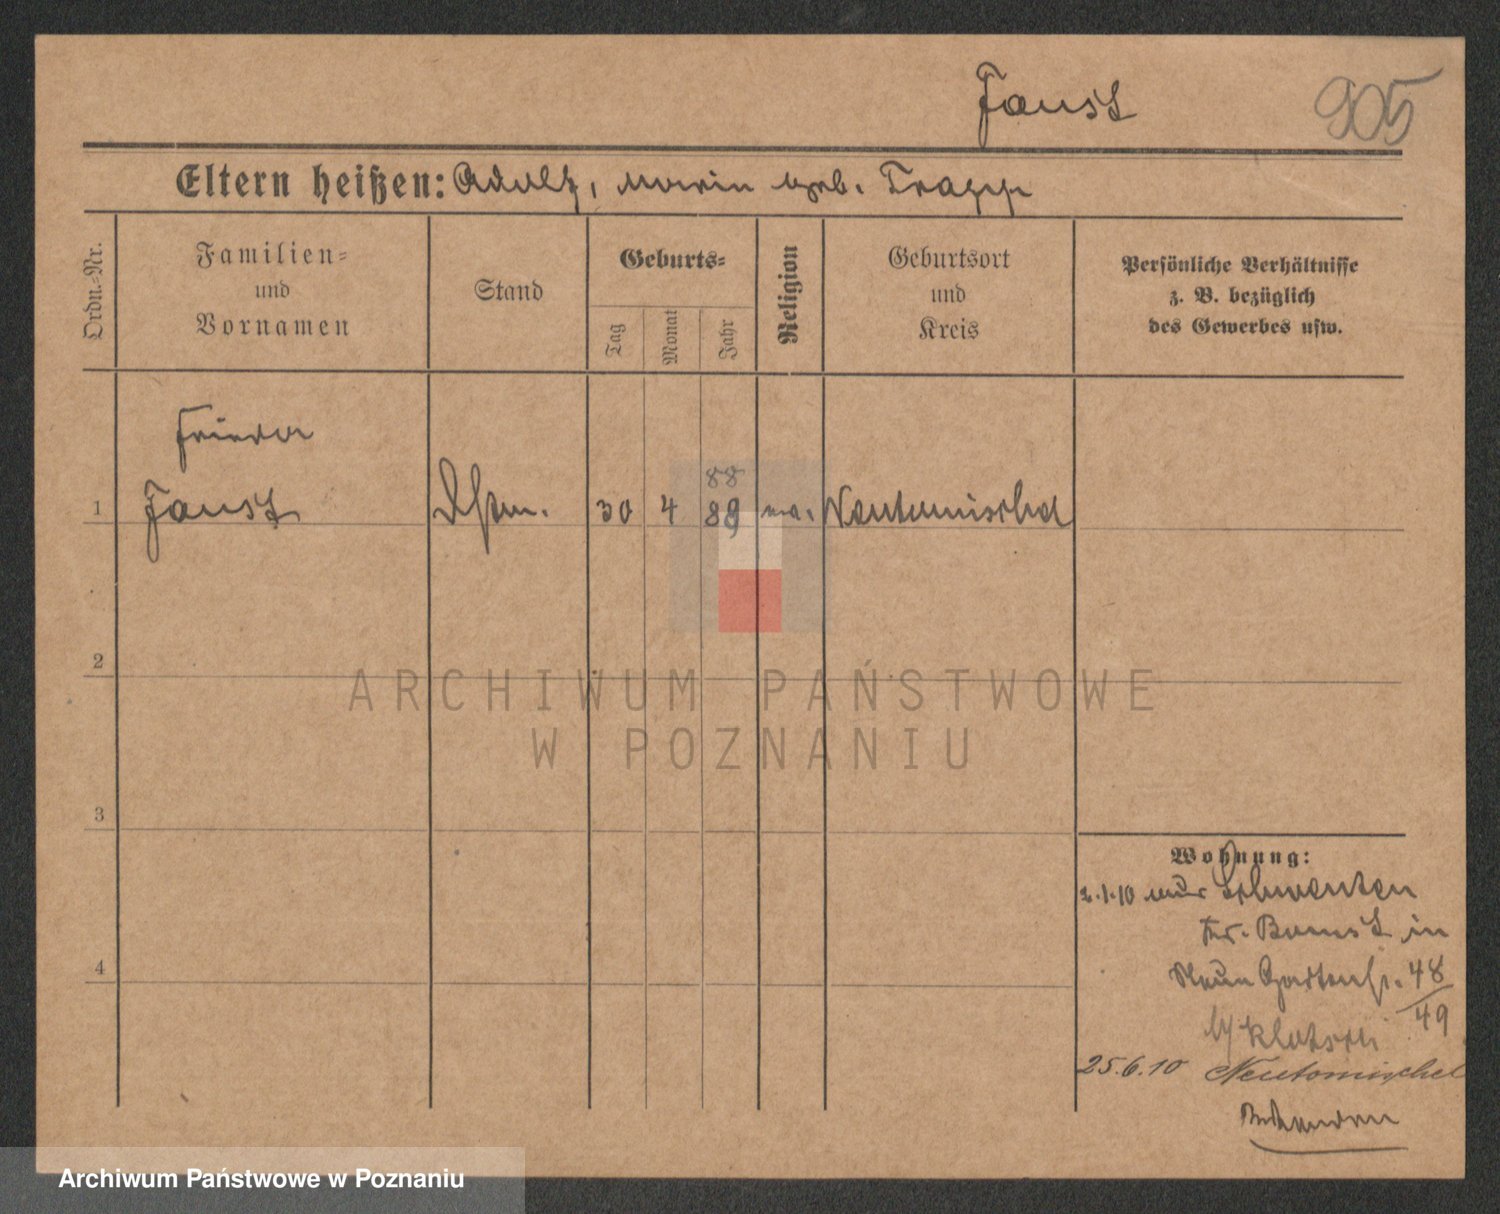 Faust
905
Eltern heißen: Adolf, Marie geb. Trapp
Ordn.-Nr.
Familien-
und
Vornamen
Stand
Geburts-
Tag
Monat
Jahr
Religion
Geburtsort
und
Kreis
Persönliche Verhältnisse
z. B. bezüglich
des Gewerbes usw.
Frieda
88
1 Faust 30 4 89 Neutomischel
2
3
4
ARCHIWUM PAŃSTWOWE
W POZNANIU
Wohnung:
2.1.10 Schwenten
Kr. Bomst in
Gartenstr. 48
49
b/ Klatsch
25.6.10 Neutomischel
Archiwum Państwowe w Poznaniu